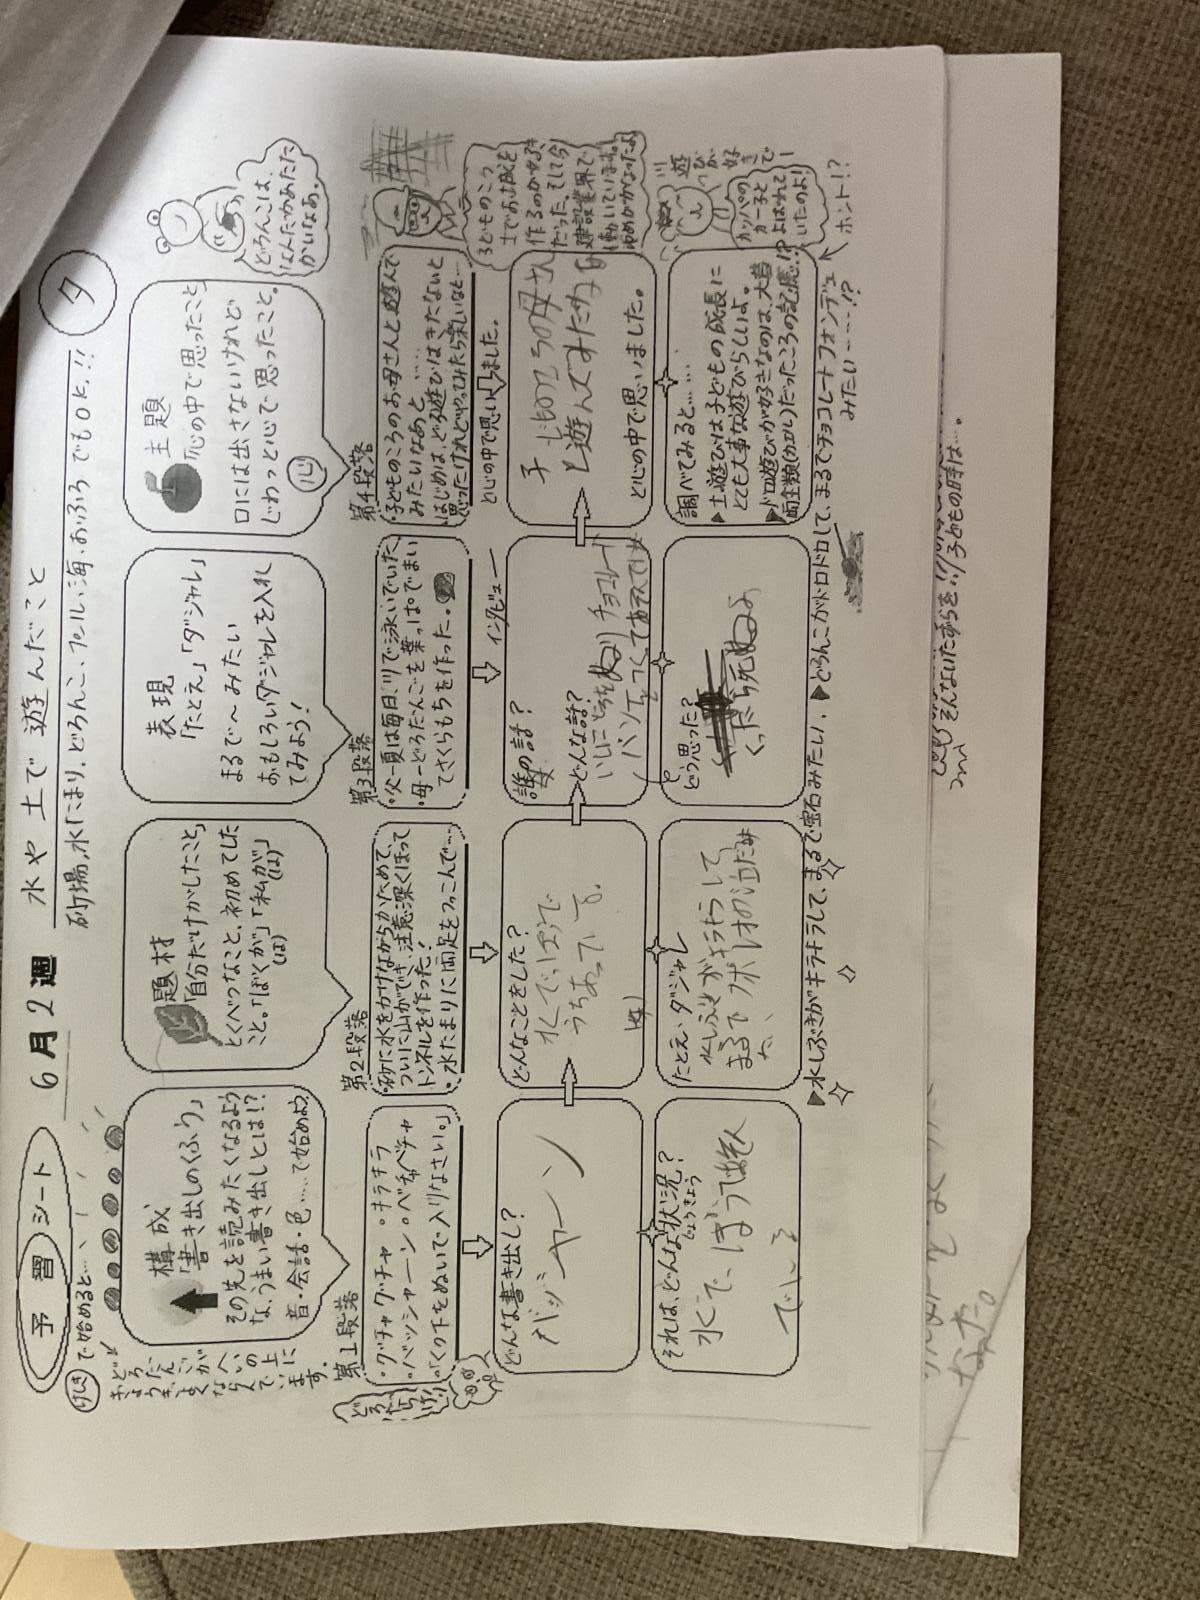 予習シート 6月2週 水や土で遊んだこと
砂場、水たまり、どろんこ、プール、海、おふろでもOK!! 夕
けしきで始めると…、
おどろきょうだんごが
構成
「書き出しのくふう」
その先を読みたくなるよう
な、うまい書き出しとは!?
音・会話・色……で始めよう。
題材
「自分だけがしたこと」
とくべつなこと、初めてした
こと。「ぼくが」「私が」
(は) (は)
表現
「たとえ」「ダジャレ」
まるで〜みたい
おもしろいダジャレを入れ
てみよう!
主題
「心の中で思ったこと」
口には出さないけれど
じわっと心で思ったこと。
心
どろんこは、
なんだかあたた
かいなあ。
第1段落
・グチャグチャ・キラキラ
・バッシャーン・ベチャベチャ
・「くつ下をぬいで入りなさい。」
第2段落
・砂に水をかけながらかためて、
ついに山ができ、注意深くほって
トンネルを作った!
・水たまりに両足をつっこんで…
第3段落
・父ー夏は毎日、川で泳いでいた
・母ーどろだんごを葉っぱでまい
てさくらもちを作った。
第4段落
・子どものころのお母さんと遊んで
みたいなあと、……
はじめは、どろ遊びはきたないと
思ったけれどやってみたら楽しいなと…
と心の中で思いました。
インタビュー
子どものころ
土でお城を
作るのが好き
だった。そして今
建設業界で
働いています。
ゆめがかなったよ
どんな書き出し?
バッジャーン
どんなことをした?
水てっぽうで
うちあっている
誰の話?
母
どんな話?
いしにどろをぬりチョコレート
パンをつくってあそんでいた
子どものころの母さん
と遊んでみたいな
と心の中で思いました。
それは、どんな状況?
じょうきょう
水てっぽうであそん
でいる
たとえ、ダジャレ
水しぶきがキラキラして
まるで
た、
どう思った?
くったら死ぬよ
調べてみると……
▶土遊びは子どもの成長に
とても大事な遊びらしいよ。
▶ドロ遊びが好きなのは、大昔
両生類(カエル)だったころの記憶!?
遊びが好き
カッパの
カー子と
よばれて
いたのよ!
▶水しぶきがキラキラして、まるで宝石みたい。▶どろんこがドロドロして、まるでチョコレートフォンデュ
みたい……!?
ホント!?
そんないたずらを!!子どもの時は…。
なった。